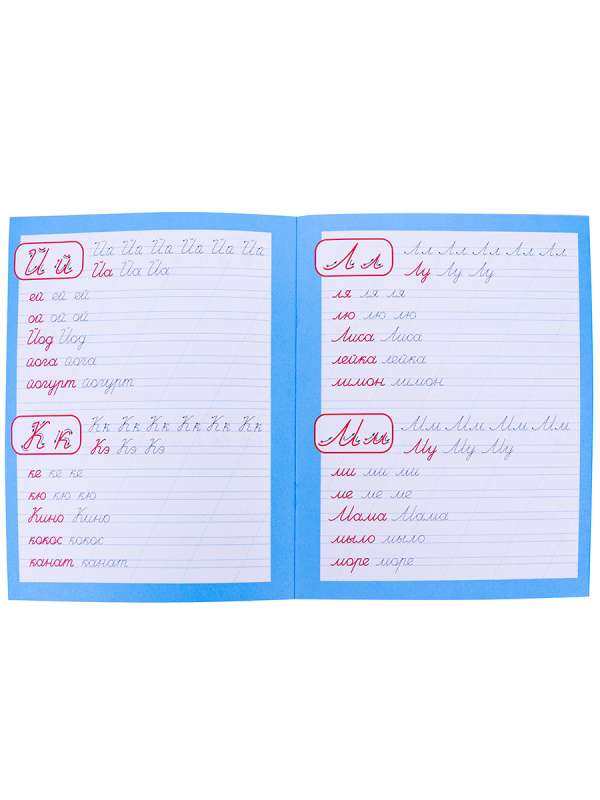 Й й
Йа Йа Йа Йа Йа Йа
Йа Йа Йа
ей ей ей
ой ой ой
Йод Йод
йога йога
йогурт йогурт
К к
Кк Кк Кк Кк Кк Кк
Кэ Кэ Кэ
ке ке ке
кю кю кю
Кино Кино
кокос кокос
канат канат
Л л
Лл Лл Лл Лл Лл
Лу Лу Лу
ля ля ля
лю лю лю
Лиса Лиса
лейка лейка
лимон лимон
М м
Мм Мм Мм Мм
Му Му Му
ми ми ми
ме ме ме
Мама Мама
мыло мыло
море море